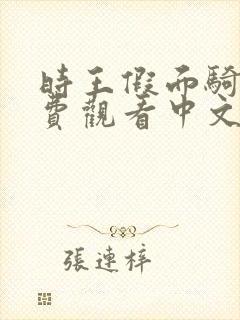 時王假而騎
費觀看中文
張連梓